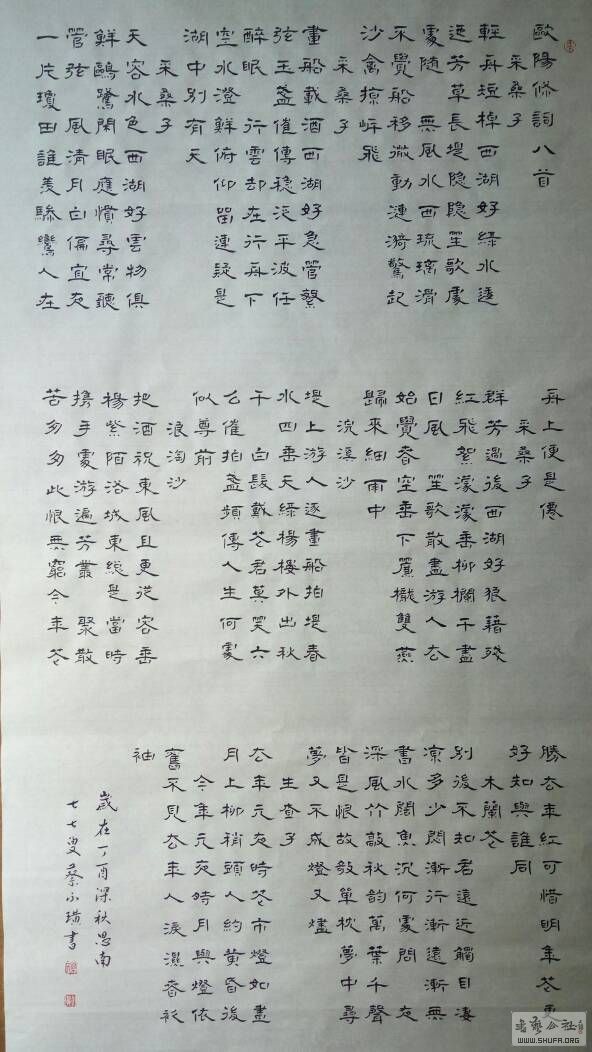 歐陽修詞八首
采桑子
輕舟短棹西湖好綠水逶
迤芳草長堤隱隱笙歌處
處隨 無風水面琉璃滑
不覺船移微動漣漪驚起
沙禽掠岸飛
采桑子
畫船載酒西湖好急管繁
弦玉盞催傳穩泛平波任
醉眠 行雲却在行舟下
空水澄鮮俯仰留連疑是
湖中別有天
采桑子
天容水色西湖好雲物俱
鮮鷗鷺閑眠應慣尋常聽
管弦 風清月白偏宜夜
一片瓊田誰羨驂鸞人在
舟上便是僊
采桑子
群芳過後西湖好狼藉殘
紅飛絮濛濛垂柳欄干盡
日風 笙歌散盡游人去
始覺春空垂下簾櫳雙燕
歸來細雨中
浣溪沙
堤上游人逐畫船拍堤春
水四垂天綠楊樓外出秋
千 白髮戴花君莫笑六
么催拍盞頻傳人生何處
似尊前
浪淘沙
把酒祝東風且更從容垂
楊紫陌洛城東總是當時
攜手處游遍芳叢 聚散
苦匆匆此恨無窮今年花
勝去年紅可惜明年花更
好知與誰同
木蘭花
別後不知君遠近觸目凄
涼多少悶漸行漸遠漸無
書水闊魚沉何處問 夜
深風竹敲秋韵萬葉千聲
皆是恨故敧單枕夢中尋
夢又不成燈又燼
生查子
去年元夜時花市燈如晝
月上柳梢頭人約黃昏後
今年元夜時月與燈依
舊不見去年人淚濕春衫
袖
歲在丁酉深秋思南
七七叟蔡永書
WWW.SHUFA.ORG